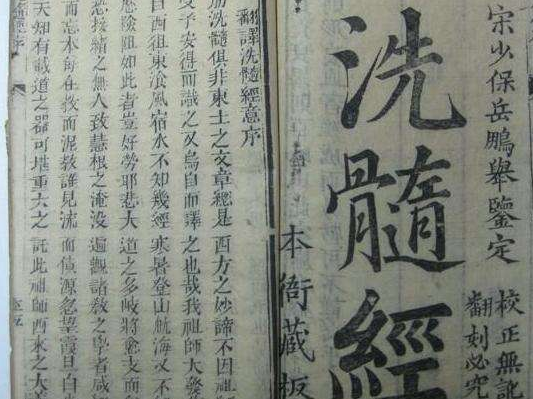 宋少保岳鵬舉鑒定
校正無訛
翻刻必究
洗髓經
本衙藏板
翻譯洗髓經意序
筋洗髓俱非東土之文章總是西方之妙諦不因祖
予安得而識之又烏自而譯之也哉我祖師大發
自西徂東餐風宿水不知幾經寒暑登山航海又不
險阻如此者豈好勞耶悲大道之多岐將愈支而
接緒之無人致慧根之淹没遍觀諸教之學者咸
而忘本每在教而泥教誰見流而源忽望震旦白
天知有載道之器可堪重大之託此祖師西來之大